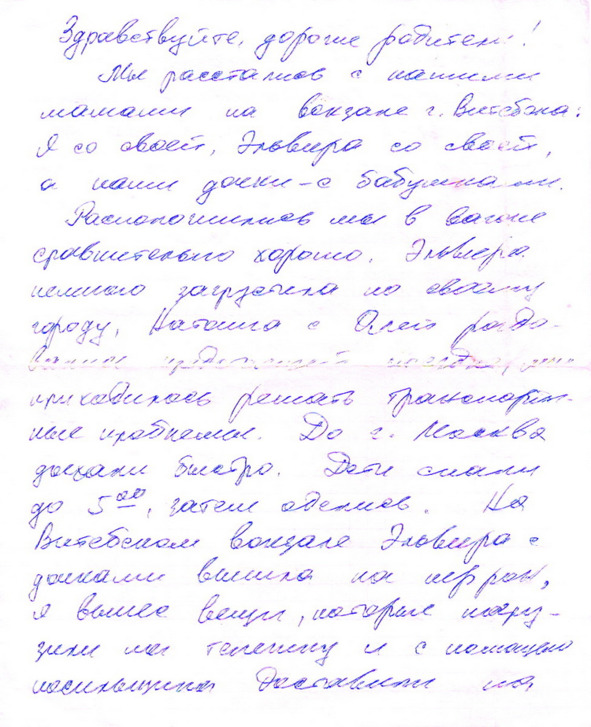 Здравствуйте, дорогие родители!
Мы расстались с нашими
мамами на вокзале г. Витебска:
я со своей, Эльвира со своей,
а наши дочки – с бабушками.
Расположились мы в вагоне
сравнительно хорошо. Эльвира
немного загрустила по своему
городу, Наташа с Олей радо-
вались предстоящей поездке, мне
приходилось решать транспорт-
ные проблемы. До г. Москва
доехали быстро. Дети спали
до 5⁰⁰, затем оделись. На
Витебском вокзале Эльвира с
дочками вышла на перрон,
я вынес вещи, которые погру-
зили на тележку и с помощью
носильщика доставили на